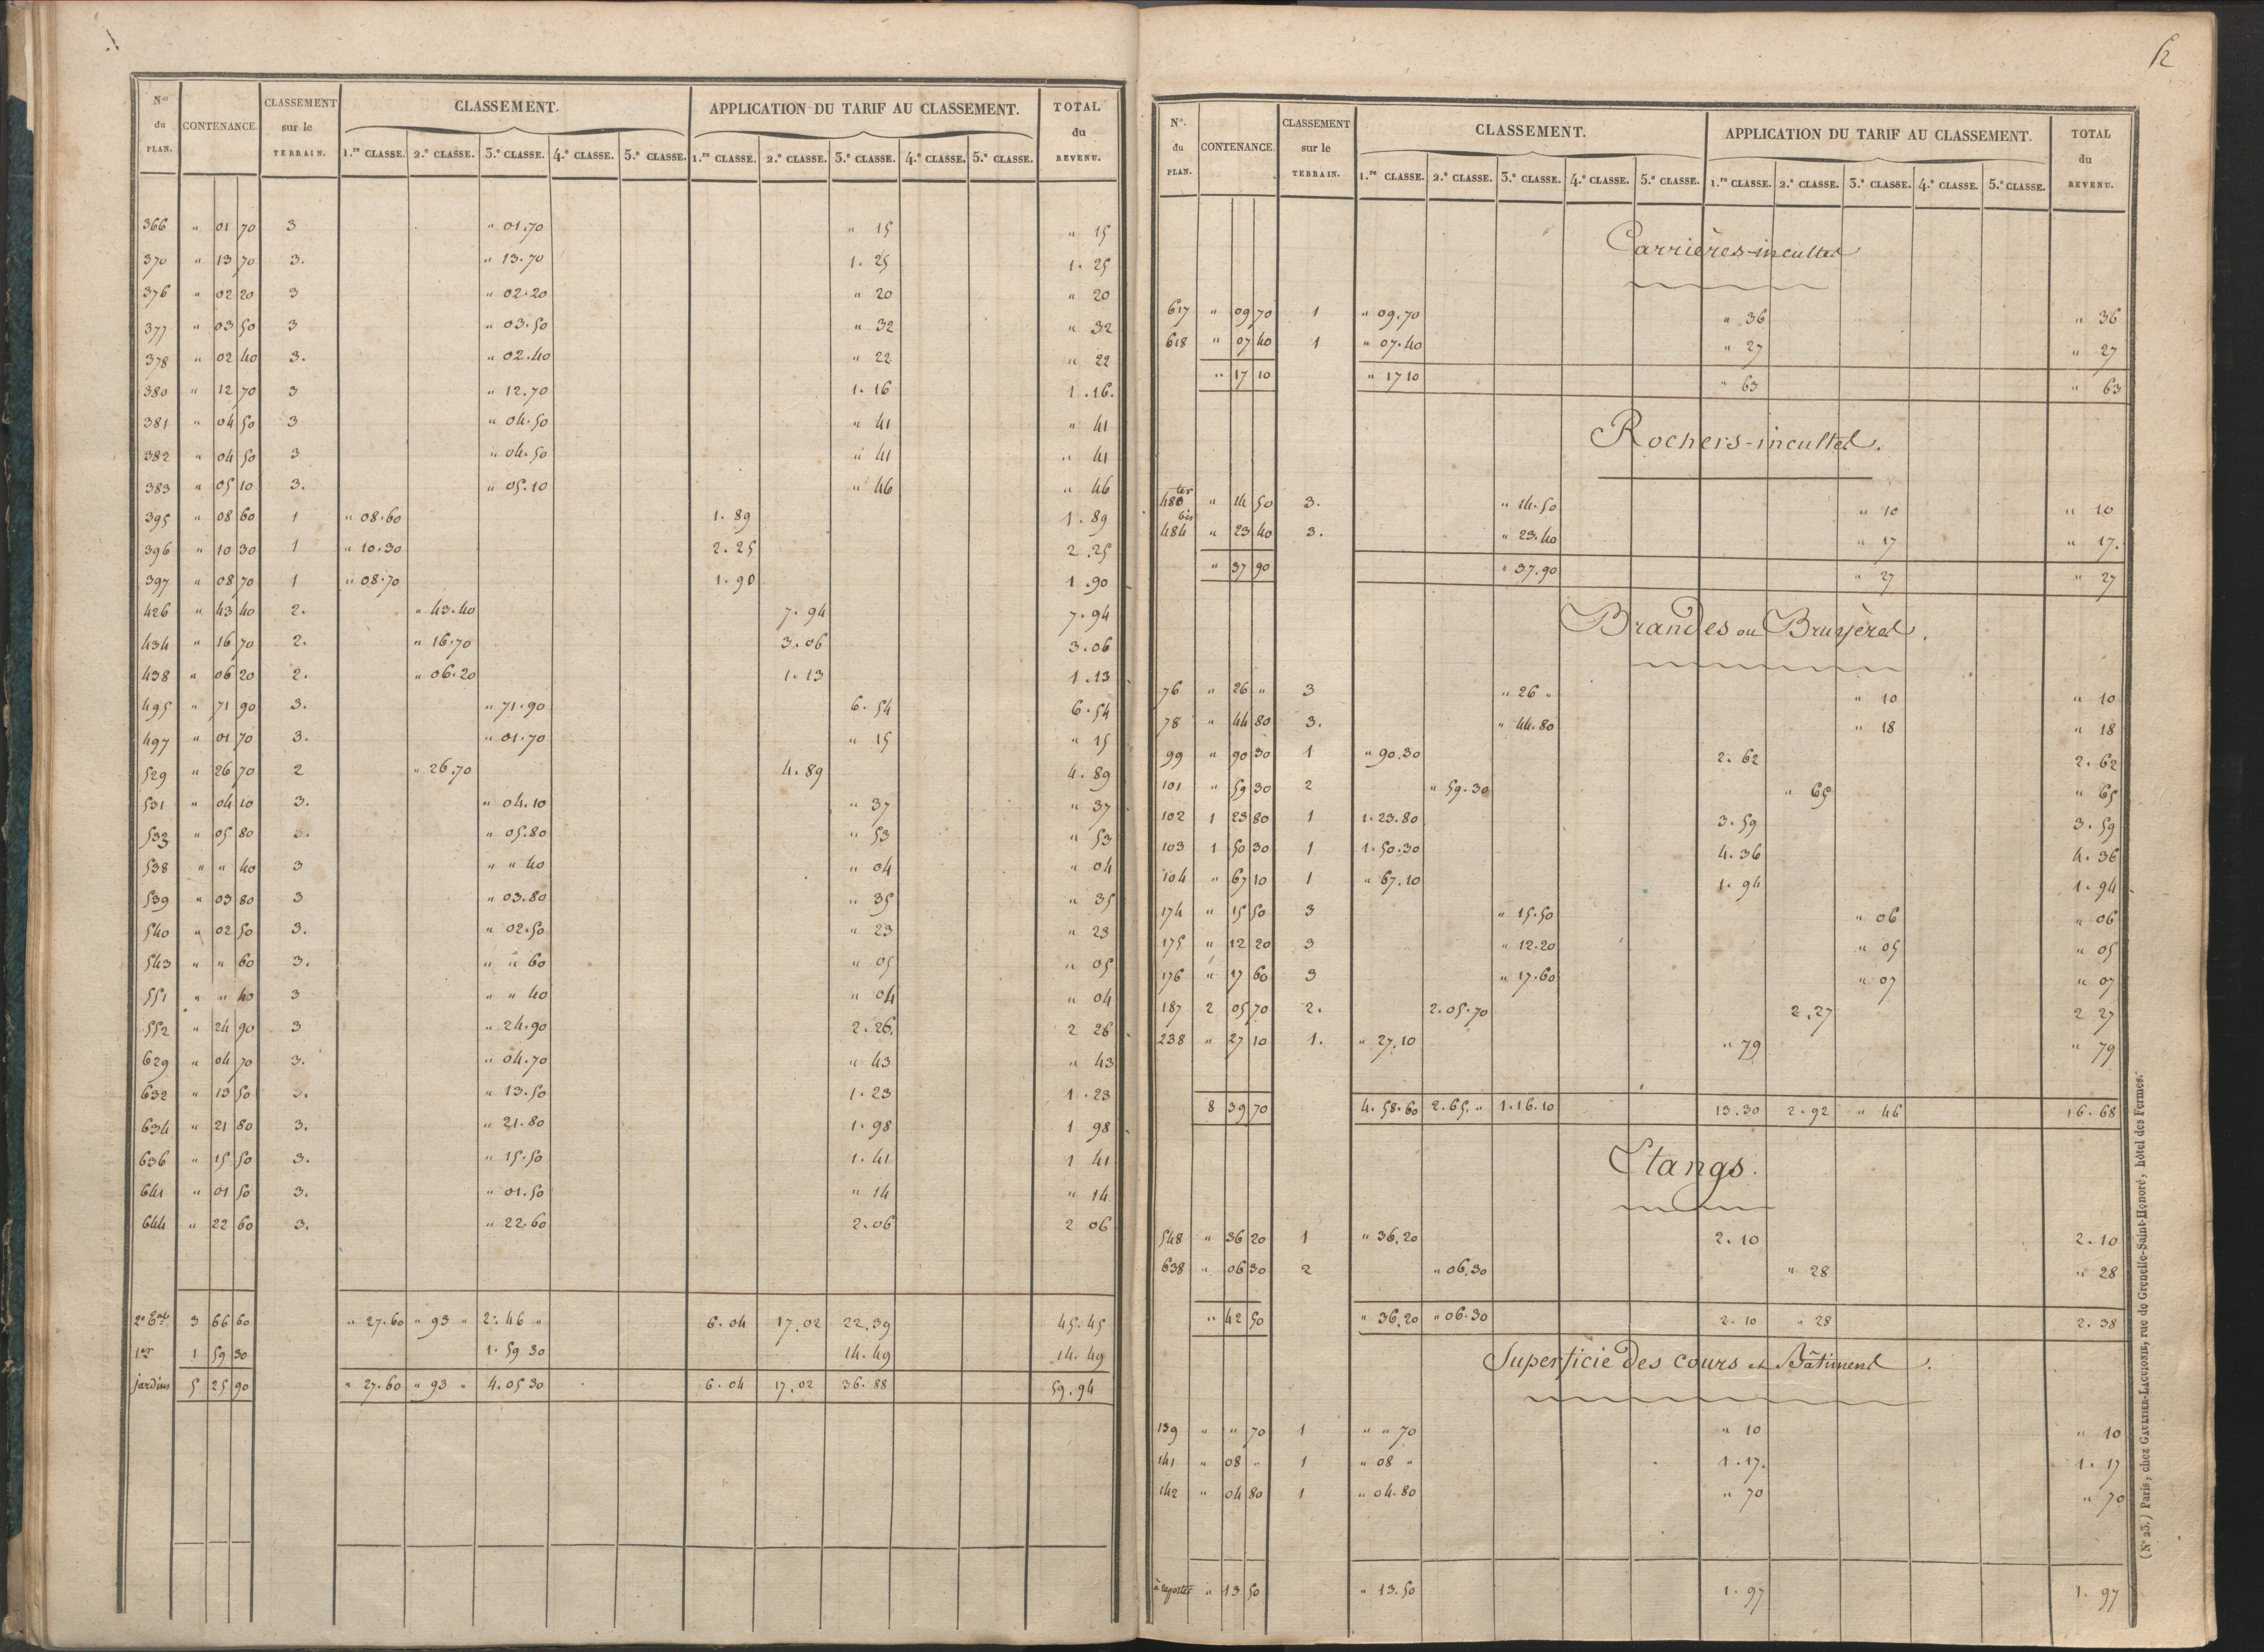 Nos du PLAN. CONTENANCE. CLASSEMENT sur le TERRAIN. CLASSEMENT. APPLICATION DU TARIF AU CLASSEMENT. TOTAL du REVENU.
1.re CLASSE. 2.e CLASSE. 3.e CLASSE. 4.e CLASSE. 5.e CLASSE. 1.re CLASSE. 2.e CLASSE. 3.e CLASSE. 4.e CLASSE. 5.e CLASSE.
366 " 01 70 3 " 01.70 " 15 " 15
370 " 13 70 3. " 13.70 1. 25 1. 25
376 " 02 20 3 " 02.20 " 20 " 20
377 " 03 50 3 " 03.50 " 32 " 32
378 " 02 40 3. " 02.40 " 22 " 22
380 " 12 70 3 " 12.70 1. 16 1 .16.
381 " 04 50 3 " 04.50 " 41 " 41
382 " 04 50 3 " 04.50 " 41 " 41
383 " 05 10 3. " 05.10 " 46 " 46
395 " 08 60 1 " 08.60 1. 89 1. 89
396 " 10 30 1 " 10.30 2. 25 2.25
397 " 08 70 1 " 08.70 1. 90 1.90
426 " 43 40 2. " 43.40 7. 94 7.94
434 " 16 70 2. " 16.70 3.06 3.06
438 " 06 20 2. " 06.20 1. 13 1.13
495 " 71 90 3. " 71.90 6. 54 6.54
497 " 01 70 3. " 01.70 " 15 " 15
529 " 26 70 2 " 26.70 4.89 4. 89
531 " 04 10 3. " 04.10 " 37 " 37
533 " 05 80 3. " 05.80 " 53 " 53
538 " " 40 3 " " 40 " 04 " 04
539 " 03 80 3 " 03.80 " 35 " 35
540 " 02 50 3. " 02.50 " 23 " 23
543 " " 60 3. " " 60 " 05 " 05
551 " " 40 3 " " 40 " 04 " 04
552 " 24 90 3 " 24.90 2.26 2 26
629 " 04 70 3. " 04.70 " 43 " 43
632 " 13 50 3. " 13.50 1. 23 1. 23
634 " 21 80 3. " 21.80 1. 98 1 98
636 " 15 50 3. " 15.50 1. 41 1 41
641 " 01 50 3. " 01.50 " 14 " 14
644 " 22 60 3. " 22.60 2.06 2 06
3 66 60 " 27.60 " 93 " 2. 46 " 6. 04 17.02 22.39 45.45
1er 1 59 30 1. 59 30 14.49 14. 49
jardins 5 25 90 " 27.60 " 93 " 4.05 30 6. 04 17.02 36. 88 59.94
12
No. du PLAN. CONTENANCE. CLASSEMENT sur le TERRAIN. CLASSEMENT. APPLICATION DU TARIF AU CLASSEMENT. TOTAL du REVENU.
1.re CLASSE. 2.e CLASSE. 3.e CLASSE. 4.e CLASSE. 5.e CLASSE. 1.re CLASSE. 2.e CLASSE. 3.e CLASSE. 4.e CLASSE. 5.e CLASSE.
Carrières-incultes
617 " 09 70 1 " 09.70 " 36 " 36
618 " 07 40 1 " 07.40 " 27 " 27
" 17 10 " 17 10 " 63 " 63
Rochers-incultes.
480 ter " 14 50 3. " 14.50 " 10 " 10
484 bis " 23 40 3. " 23.40 " 17 " 17.
" 37 90 " 37.90 " 27 " 27
Brandes ou Bruyères.
76 " 26 " 3 " 26 " " 10 " 10
78 " 44 80 3. " 44.80 " 18 " 18
99 " 90 30 1 " 90.30 2. 62 2. 62
101 " 59 30 2 " 59.30 " 65 " 65
102 1 23 80 1 1.23.80 3.59 3.59
103 1 50 30 1 1.50.30 4.36 4. 36
104 " 67 10 1 " 67.10 1. 94 1. 94
174 " 15 50 3 " 15.50 " 06 " 06
175 " 12 20 3 " 12.20 " 05 " 05
176 " 17 60 3 " 17.60 " 07 " 07
187 2 05 70 2. 2.05.70 2.27 2 27
238 " 27 10 1. " 27.10 " 79 " 79
8 39 70 4.58.60 2.65. " 1.16.10 13.30 2.92 " 46 16.68
Etangs.
548 " 36 20 1 " 36.20 2. 10 2. 10
638 " 06 30 2 " 06.30 " 28 " 28
" 42 50 " 36.20 " 06.30 2. 10 " 28 2. 38
Superficie des cours et Bâtiments.
139 " " 70 1 " " 70 " 10 " 10
141 " 08 " 1 " 08 " 1.17. 1. 17
142 " 04 80 1 " 04.80 " 70 " 70
à reporter " 13 50 " 13.50 1. 97 1. 97
(No 23.) Paris; chez GAULTIER-LAGUIONIE, rue de Grenelle-Saint-Honoré, hôtel des Fermes.